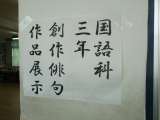 国語科
三年
創作俳句
作品展示